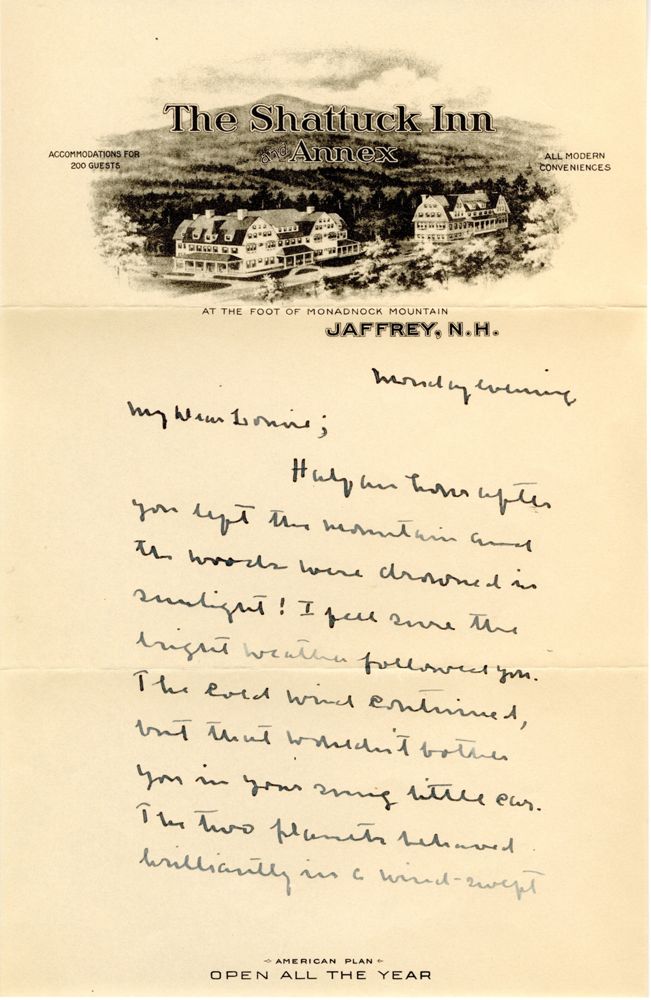 The Shattuck Inn
and Annex
ACCOMMODATIONS FOR
200 GUESTS
ALL MODERN
CONVENIENCES
AT THE FOOT OF MONADNOCK MOUNTAIN
JAFFREY, N.H.
Monday evening
My Dear
Half an hour after
you left the mountain and
the woods were drowned in
sunlight! I feel sure the
bright weather followed you.
The cold wind continued,
but that wouldn't bother
you in your snug little car.
The two planets behaved
brilliantly in a wind-swept
AMERICAN PLAN
OPEN ALL THE YEAR